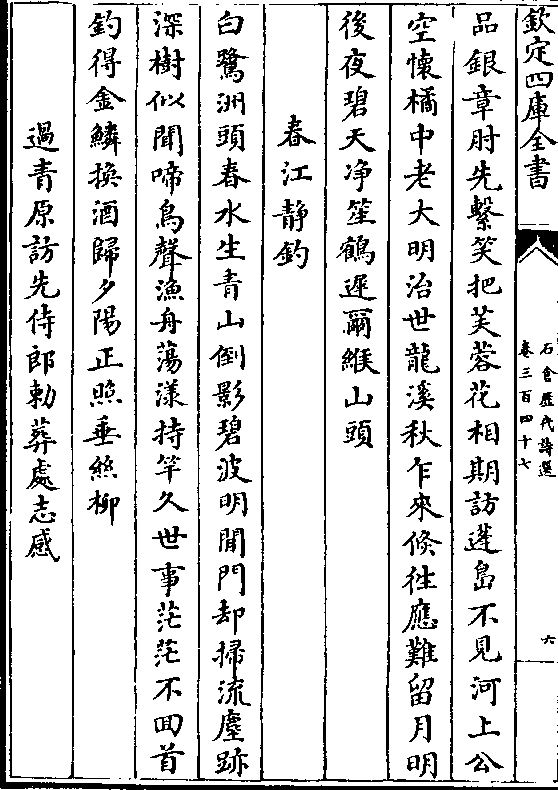 欽定四庫全書
石倉歷代詩選
卷三百四十七
六
品銀章肘先繫笑把芙蓉花相期訪蓬島不見河上公
空懷橘中老大明治世龍溪秋乍來倐徃應難留月明
後夜碧天净笙鶴遲爾緱山頭
春江静釣
白鷺洲頭春水生青山倒影碧波明閒門却掃流塵跡
深樹似聞啼鳥聲漁舟蕩漾持竿久世事茫茫不囬首
釣得金鱗換酒歸夕陽正照垂絲柳
過青原訪先侍郎勅葬處志感